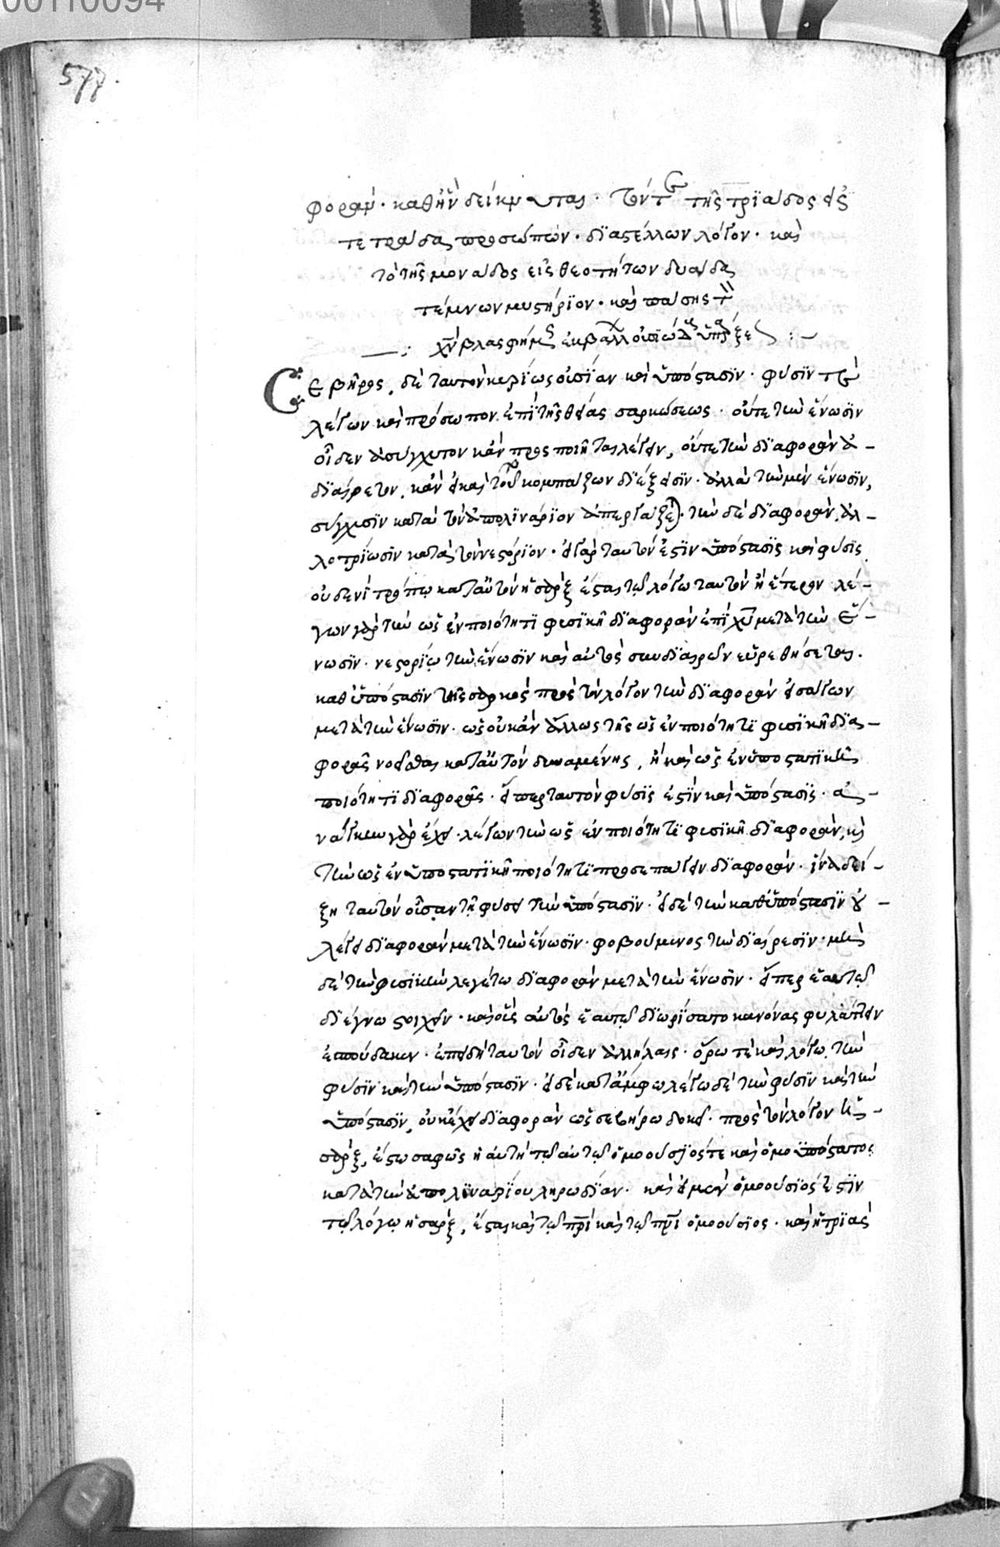 00110094
577.
φοράν· καθ' ἣν δείκνυται· τὸν τῆς τριάδος εἰς
τετράδα προσώπων· διαστέλλων λόγον· καὶ
τὸ τῆς μονάδος εἰς θεοτήτων δυάδα
τέμνων μυστήριον· καὶ πάσης τὸν
χν βλασφήμως ἐκβάλλει οὐσιώδους ὑπάρξεως :~
Σεβῆρος, δὲ ταυτὸν κυρίως οὐσίαν καὶ ὑπόστασιν· φύσιν τὲ
λέγων καὶ πρόσωπον ἐπὶ τῆς θείας σαρκώσεως· οὔτε τὴν ἕνωσιν
οἶδεν ἀσύγχυτον κἂν προσποιῆται λέγειν, οὔτε τὴν διαφορὰν ἀ-
διαίρετον, κἂν εἰ καὶ τοῦτο κομπάζων διέξεισιν· ἀλλὰ τὴν μὲν ἕνωσιν,
σύγχυσιν κατὰ τὸν ἀπολινάριον ἀπεργάζεται· τὴν δὲ διαφορὰν, ἀλ-
λοτρίωσιν κατὰ τὸν νεστόριον· εἰ γὰρ ταυτόν ἐστιν ὑπόστασις καὶ φύσις
οὐδενὶ τρόπῳ κατ' αὐτὸν ἡ σὰρξ ἔσται τῷ λόγῳ ταυτὸν ἢ ἕτερον λέ-
γων γὰρ τὴν ὡς ἐν ποιότητι φυσικῇ διαφορὰν ἐπὶ χυ μετὰ τὴν ἕ-
νωσιν· νεστορίῳ τὴν ἕνωσιν καὶ αὐτὸς συνδιαιρῶν εὑρεθήσεται.
καθ' ὑπόστασιν τῆς σαρκὸς πρὸς τὸν λόγον τὴν διαφορὰν εἰσάγων
μετὰ τὴν ἕνωσιν· ὡς οὐκ ἂν ἄλλως τῆς ὡς ἐν ποιότητι φυσικῇ δια-
φορᾶς νοεῖσθαι κατ' αὐτὸν δυναμένης, ἢ καὶ ὡς ἐν ὑποστατικῇ
ποιότητι διαφορᾶς· εἴπερ ταυτὸν φύσις ἐστὶν καὶ ὑπόστασις· ἀ-
νάγκην γὰρ ἔχει· λέγων τὴν ὡς ἐν ποιότητι φυσικῇ διαφορὰν, καὶ
τὴν ὡς ἐν ὑποστατικῇ ποιότητι προσεπάγειν διαφορὰν· ἵνα δεί-
ξῃ ταυτὸν οὖσαν τῇ φύσει τὴν ὑπόστασιν· εἰ δὲ τὴν καθ' ὑπόστασιν οὐ
λέγει διαφορὰν μετὰ τὴν ἕνωσιν· φοβούμενος τὴν διαίρεσιν· μὴ
δὲ τὴν φυσικὴν λεγέτω διαφορὰν μετὰ τὴν ἕνωσιν· εἴπερ ἑαυτῷ
διέγνω στοιχεῖν· καὶ οὓς αὐτὸς ἑαυτῷ διωρίσατο κανόνας φυλάττειν
ἐσπούδακεν· ἐπειδὴ ταυτὸν οἶδεν ἀλλήλαις· ὅρῳ τὲ καὶ λόγῳ, τὴν
φύσιν καὶ τὴν ὑπόστασιν· εἰ δὲ κατ' ἄμφω λέγω δὲ τὴν φύσιν καὶ τὴν
ὑπόστασιν, οὐκ ἔχει διαφορὰν ὡς σεβήρῳ δοκεῖ· πρὸς τὸν λόγον ἡ-
σὰρξ, ἔστω σαφῶς ἡ αὐτὴ τῷ αὐτῷ ὁμοούσιός τε καὶ ὁμοϋπόστατος
κατὰ τὴν ἀπολιναρίου ληρωδίαν· καὶ εἰ μὲν ὁμοούσιός ἐστιν
τῷ λόγῳ ἡ σαρξ, ἔσται καὶ τῷ πρὶ καὶ τῷ πνὶ ὁμοούσιος· καὶ ἡ τριὰς